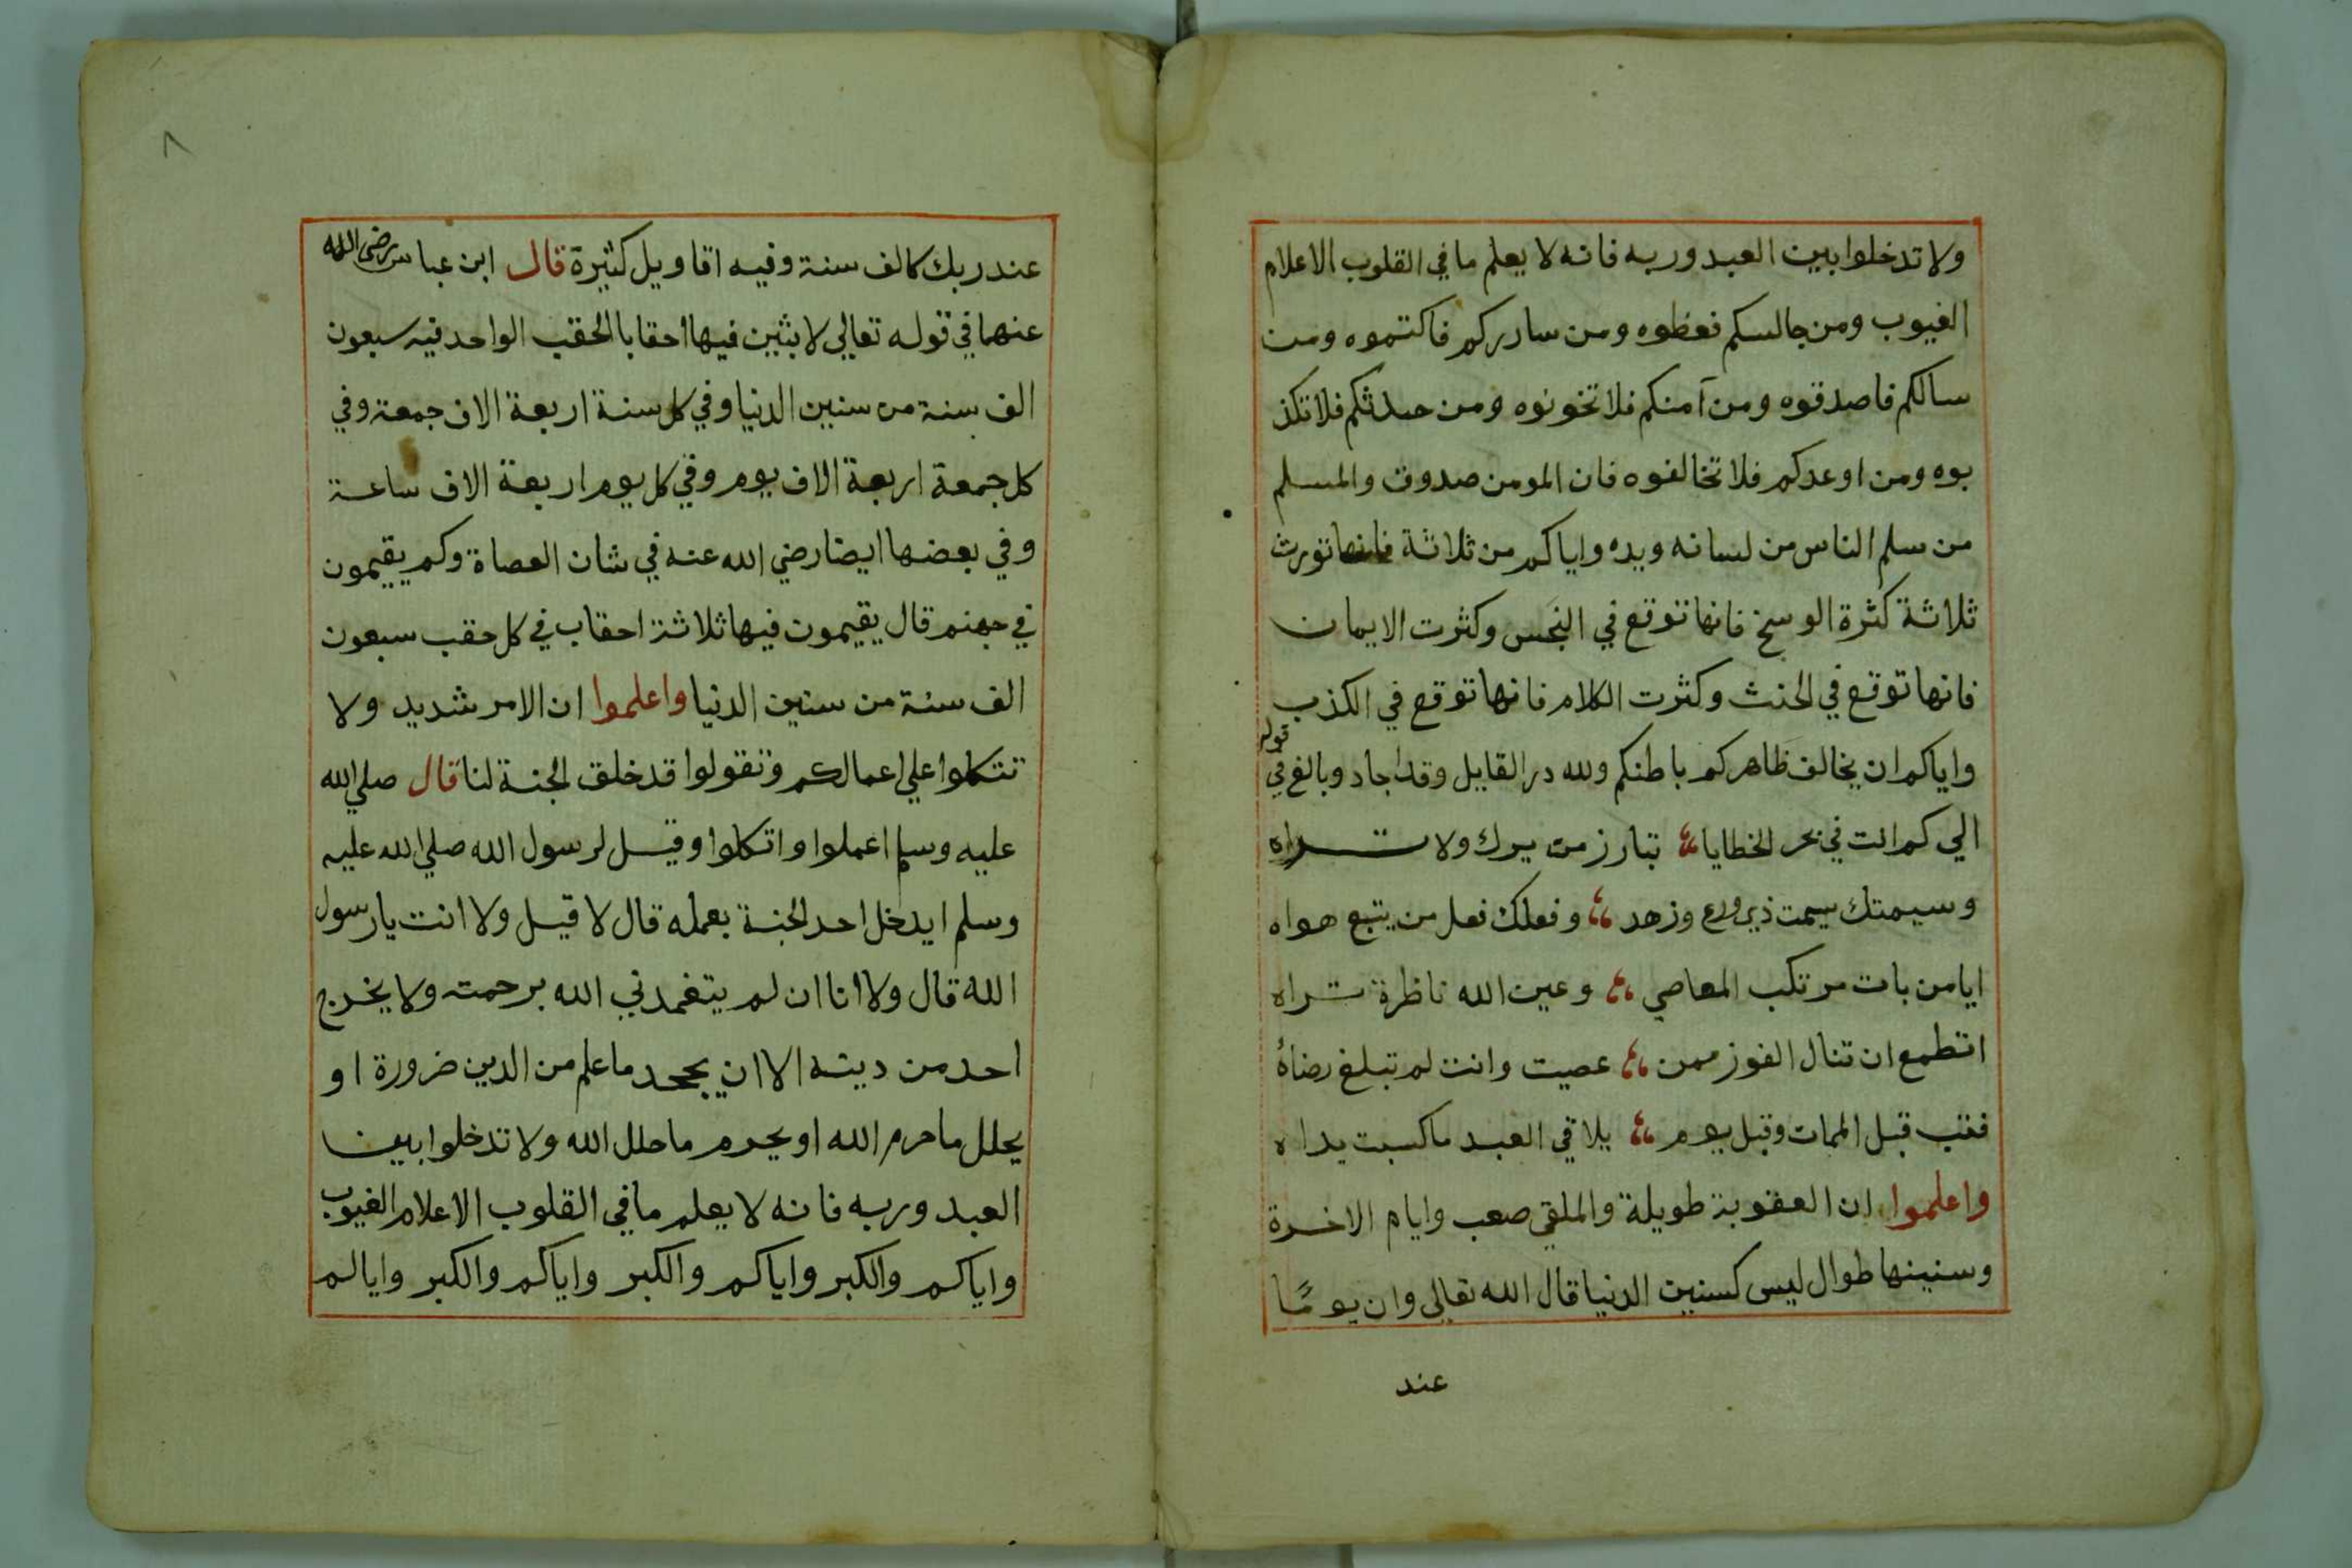 ولا تدخلوا بين العبد وربه فانه لا يعلم ما في القلوب الاعلام
الغيوب ومن جالسكم فعظوه ومن ساررركم فاكتموه ومن
سالكم فاصدقوه ومن آمنكم فلا تخونوه ومن حدثكم فلا تكذ
بوه ومن اوعدكم فلا تخالفوه فان المومن صدوق والمسلم
من سلم الناس من لسانه ويده واياكم من ثلاثة فانها تورث
ثلاثة كثرة الوسخ فانها توقع في النجس وكثرت الايمان
فانها توقع في الحنث وكثرت الكلام فانها توقع في الكذب
واياكم ان يخالف ظاهركم باطنكم ولله در القايل وقد اجاد وبالغ في قوله
الي كم انت في بحر الخطايا تبارز من يرك ولا تراه
وسيمتك سيمت ذي ورع وزهد وفعلك فعل من يتبع هواه
ايا من بات مرتكب المعاصي وعين الله ناظرة تراه
اتطمع ان تنال الفوز ممن عصيت وانت لم تبلغ رضاه
فتب قبل الممات وقبل يوم يلاقي العبد ما كسبت يداه
واعلموا ان العقوبة طويلة والملقي صعب وايام الاخرة
وسنينها طوال ليس كسنين الدنيا قال الله تعالي وان يومًا
عند
٨
عند ربك كالف سنة وفيه اقاويل كثيرة قال ابن عباس رضي الله
عنهما في قوله تعالي لابثين فيها احقابا الحقب الواحد فيه سبعون
الف سنة من سنين الدنيا وفي كل سنة اربعة الاف جمعة وفي
كل جمعة اربعة الاف يوم وفي كل يوم اربعة الاف ساعة
وفي بعضها ايضا رضي الله عنه في شان العصاة وكم يقيمون
في جهنم قال يقيمون فيها ثلاثة احقاب في كل حقب سبعون
الف سنة من سنين الدنيا واعلموا ان الامر شديد ولا
تتكلوا علي اعمالكم وتقولوا قد خلق الجنة لنا قال صلي الله
عليه وسلم اعملوا واتكلوا وقيل لرسول الله صلي الله عليه
وسلم ايدخل احد الجنة بعمله قال لا قيل ولا انت يا رسول
الله قال ولا انا ان لم يتغمدني الله برحمته ولا يخرج
احد من دينه الا ان يجحد ما علم من الدين ضرورة او
يحلل ما حرم الله او يحرم ما حلل الله ولا تدخلوا بين
العبد وربه فانه لا يعلم ما في القلوب الاعلام الغيوب
واياكم والكبر واياكم والكبر واياكم والكبر وايالم